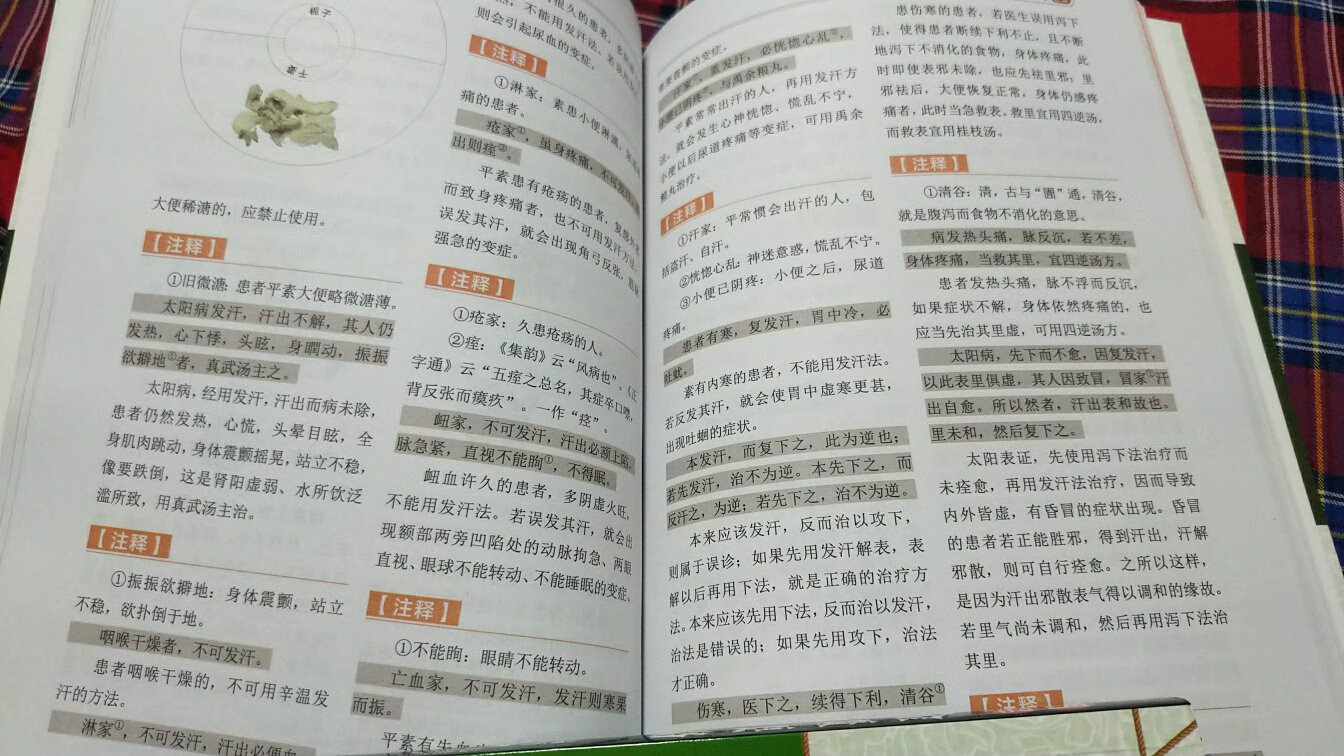 栀子
姜士
大便稀溏的，应禁止使用。
【注释】
①旧微溏：患者平素大便略微溏薄。
太阳病发汗，汗出不解，其人仍
发热，心下悸，头眩，身瞤动，振振
欲擗地①者，真武汤主之。
太阳病，经用发汗，汗出而病未除，
患者仍然发热，心慌，头晕目眩，全
身肌肉跳动，身体震颤摇晃，站立不稳，
像要跌倒，这是肾阳虚弱、水所饮泛
滥所致，用真武汤主治。
【注释】
①振振欲擗地：身体震颤，站立
不稳，欲扑倒于地。
咽喉干燥者，不可发汗。
患者咽喉干燥的，不可用辛温发
汗的方法。
淋家①，不可发汗，汗出必便血
很久的患者，多
不能用发汗法。若
则会引起尿血的变症。
【注释】
①淋家：素患小便淋漓，尿道
痛的患者。
疮家①，虽身疼痛，不可发
出则痓②。
平素患有疮疡的患者，复感外
而致身疼痛者，也不可用发汗方法。
误发其汗，就会出现角弓反张、
强急的变症。
【注释】
①疮家：久患疮疡的人。
②痓：《集韵》云“风病也”。《正
字通》云“五痓之总名，其症卒口噤，
背反张而瘼疚”。一作“痉”。
衄家，不可发汗，汗出必额上陷，
脉急紧，直视不能眴①，不得眠。
衄血许久的患者，多阴虚火旺，
不能用发汗法。若误发其汗，就会出
现额部两旁凹陷处的动脉拘急、两眼
直视、眼球不能转动、不能睡眠的变症。
【注释】
①不能眴：眼睛不能转动。
亡血家，不可发汗，发汗则寒栗
而振。
平素有
寒栗震颤的变症。
汗家①，重发汗，必恍惚心乱②，
小便已阴疼③，与禹余粮丸。
平素常常出汗的人，再用发汗方
法，就会发生心神恍惚、慌乱不宁，
小便以后尿道疼痛等变症，可用禹余
粮丸治疗。
【注释】
①汗家：平常惯会出汗的人，包
括盗汗、自汗。
②恍惚心乱：神迷意惑，慌乱不宁。
③小便已阴疼：小便之后，尿道
疼痛。
患者有寒，复发汗，胃中冷，必
吐蚘。
素有内寒的患者，不能用发汗法。
若反发其汗，就会使胃中虚寒更甚，
出现吐蛔的症状。
本发汗，而复下之，此为逆也；
若先发汗，治不为逆。本先下之，而
反汗之，为逆；若先下之，治不为逆。
本来应该发汗，反而治以攻下，
则属于误诊；如果先用发汗解表，表
解以后再用下法，就是正确的治疗方
法。本来应该先用下法，反而治以发汗，
治法是错误的；如果先用攻下，治法
才正确。
伤寒，医下之，续得下利，清谷①
患伤寒的患者，若医生误用泻下
法，使得患者断续下利不止，且不断
地泻下不消化的食物，身体疼痛，此
时即使表邪未除，也应先祛里邪；里
邪祛后，大便恢复正常，身体仍感疼
痛者，此时当急救表。救里宜用四逆汤，
而救表宜用桂枝汤。
【注释】
①清谷：清，古与“圊”通，清谷，
就是腹泻而食物不消化的意思。
病发热头痛，脉反沉，若不差，
身体疼痛，当救其里，宜四逆汤方。
患者发热头痛，脉不浮而反沉，
如果症状不解，身体依然疼痛的，也
应当先治其里虚，可用四逆汤方。
太阳病，先下而不愈，因复发汗，
以此表里俱虚，其人因致冒，冒家①汗
出自愈。所以然者，汗出表和故也。
里未和，然后复下之。
太阳表证，先使用泻下法治疗而
未痊愈，再用发汗法治疗，因而导致
内外皆虚，有昏冒的症状出现。昏冒
的患者若正能胜邪，得到汗出，汗解
邪散，则可自行痊愈。之所以这样，
是因为汗出邪散表气得以调和的缘故。
若里气尚未调和，然后再用泻下法治
其里。
【注释】